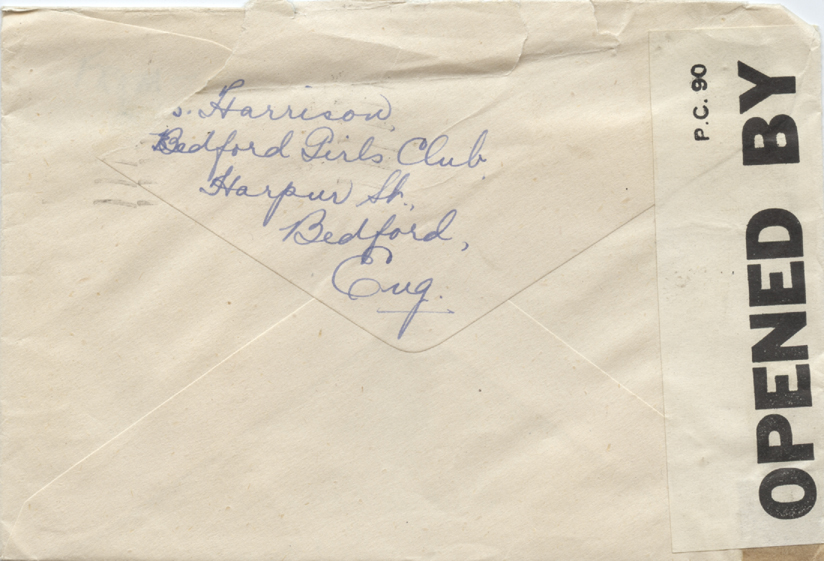 s. Harrison,
Bedford Girls Club
Harpur St.,
Bedford,
Eng.
P.C. 90
OPENED BY